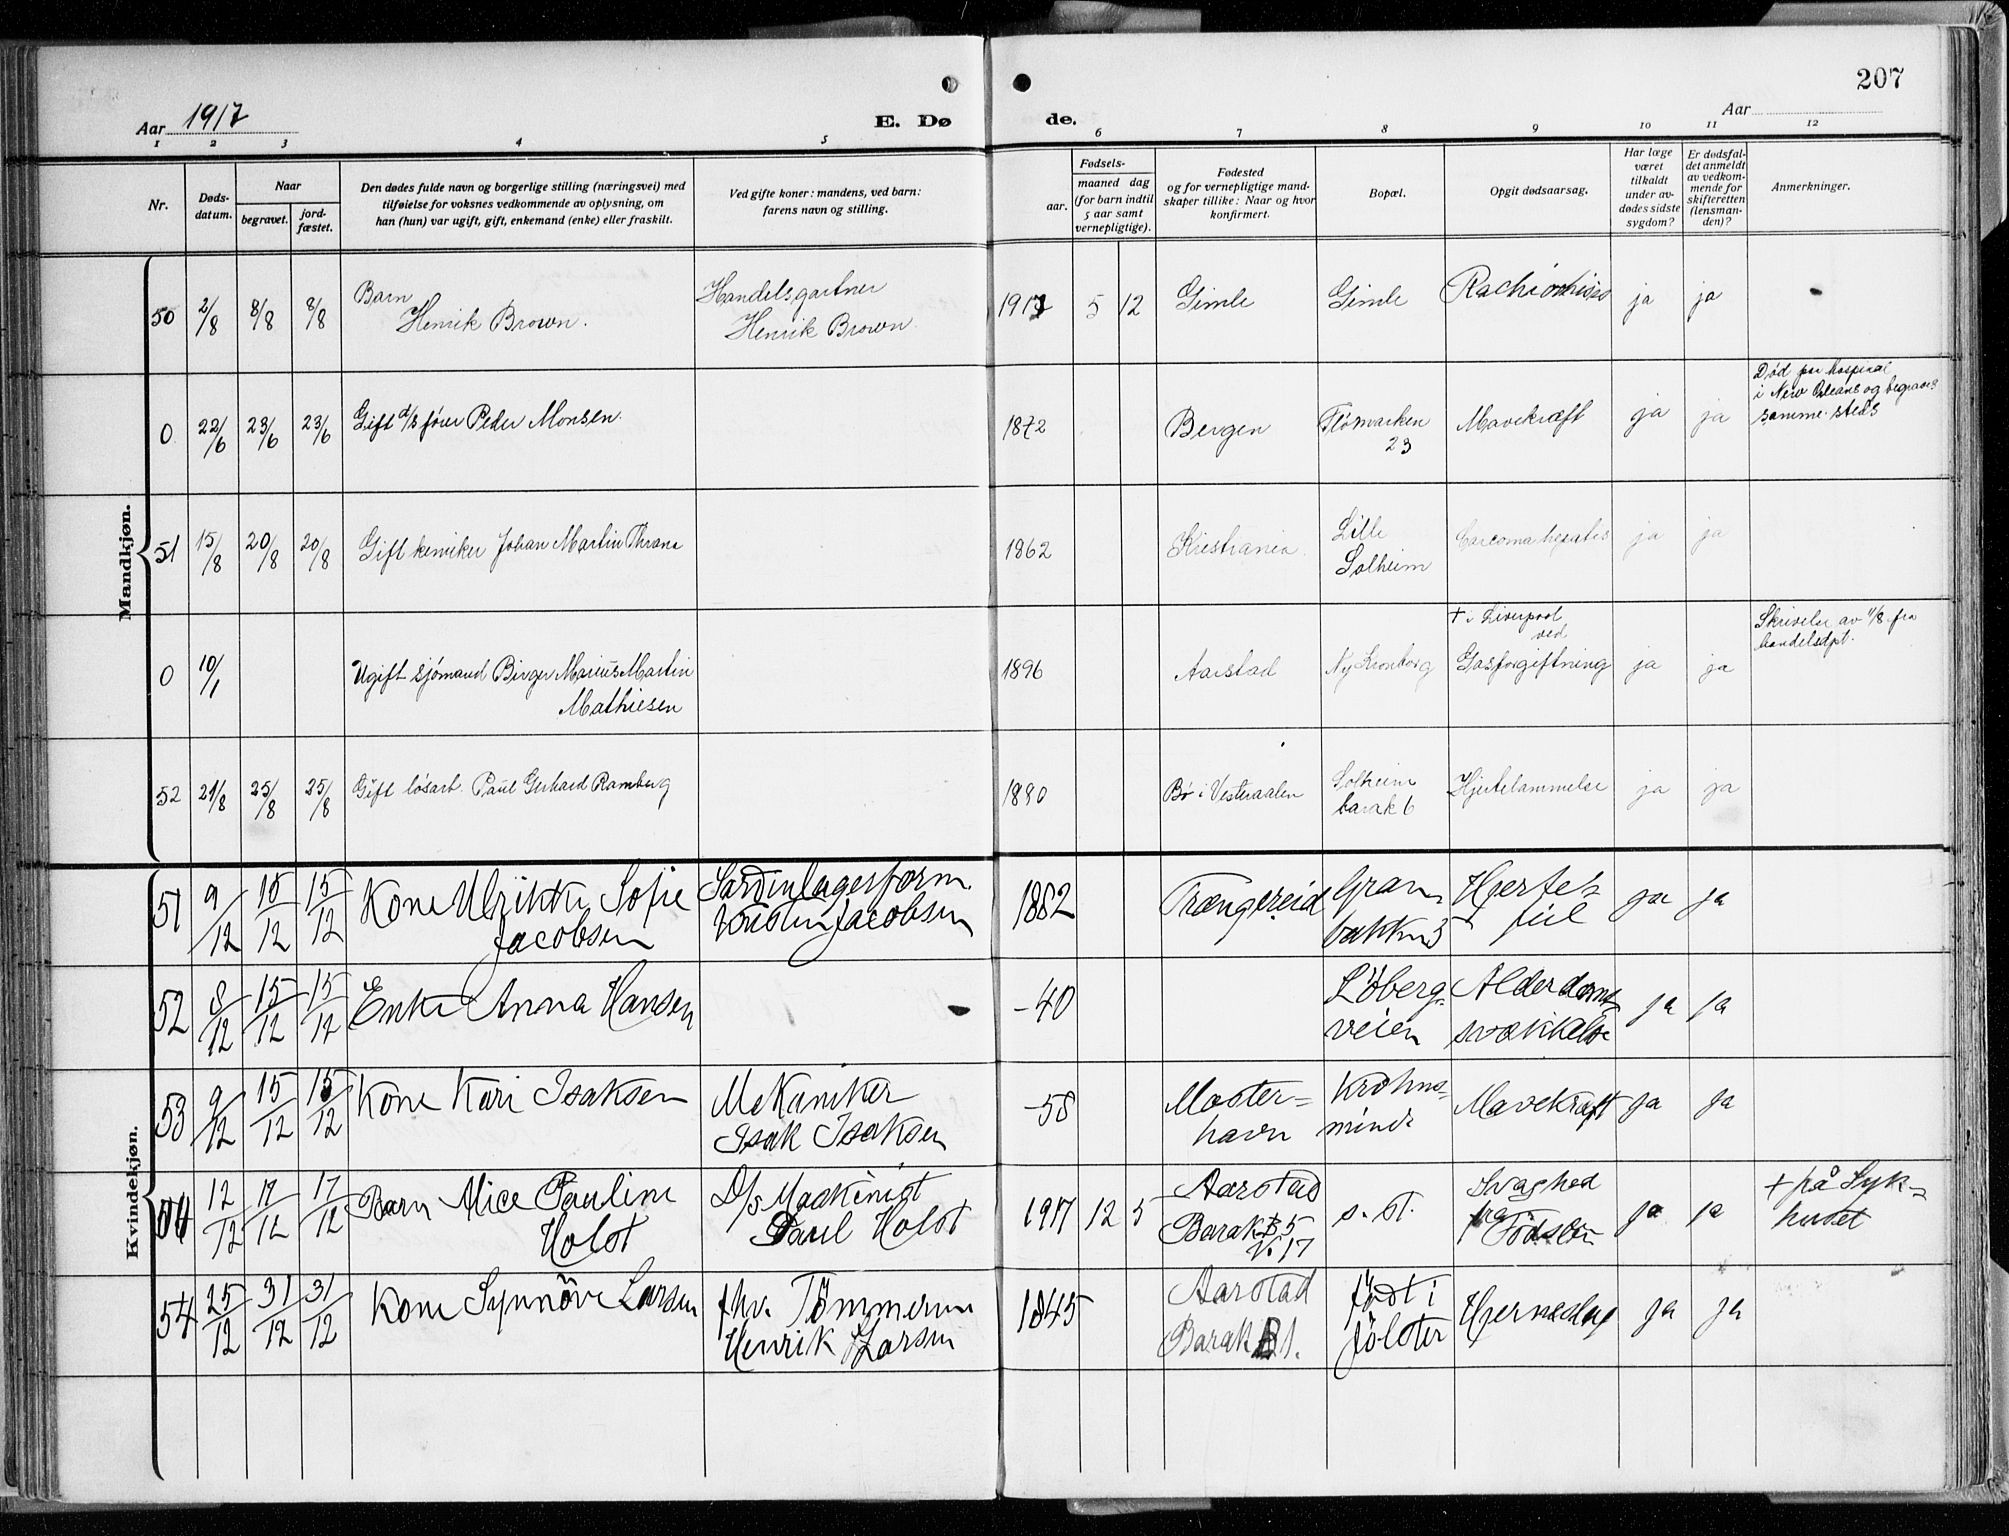 207
Aar 1917
E. Dø
de.
Aar
1 2 3 4 5 6 7 8 9 10 11 12
Nr.
Døds-
datum.
Naar
begravet.
jord-
fæstet.
Den dødes fulde navn og borgerlige stilling (næringsvei) med
tilføielse for voksnes vedkommende av oplysning, om
han (hun) var ugift, gift, enkemand (enke) eller fraskilt.
Ved gifte koner: mandens, ved barn:
farens navn og stilling.
Fødsels-
aar.
maaned dag
(for barn indtil
5 aar samt
vernepligtige).
Fødested
og for vernepligtige mand-
skaper tillike: Naar og hvor
konfirmert.
Bopæl.
Opgit dødsaarsag.
Har læge
været
tilkaldt
under av-
dødes sidste
sygdom?
Er dødsfal-
det anmeldt
av vedkom-
mende for
skifteretten
(lensman-
den)?
Anmerkninger.
Mandkjøn.
50 2/8 8/8 8/8 Barn
Henrik Brown.
Handelsgartner
Henrik Brown
1917 5 12 Gimle Gimle ja ja
0 22/6 23/6 23/6 Gift d/s fører Peder Monsen.
1872 Bergen Flønmarken
23
Mavekræft ja ja
Død paa hospital
i New Orleans og begravet
samme steds
51 15/8 20/8 20/8 Gift kemiker Johan Martin Thrane
1862 Kristiania. Lille
Solheim
Sarcoma hepatis ja ja
0 10/1 Ugift sjømand Birger Marius Martin
Mathiesen
1896 Aarstad Ny Kronborg
+ i Liverpool
ved
Gasforgiftning ja ja
Skrivelse av 11/8 fra
handelsdpt.
52 21/8 25/8 25/8 Gift løsarb. Paul Gerhard Ramberg
1890 Bø i Vesteraalen Solheim
barak 6
Hjertelammelse ja ja
Kvindekjøn.
51 9/12 15/12 15/12 Kone Ulrikke Sofie
Jacobsen
Sardinlagerform.
Jacobsen
1882 Trængereid Gran-
bakken 3
Hjerte-
feil
ja ja
52 8/12 15/12 15/12 Enke Anna Hansen
-40 Løberg-
veien
Alderdoms
svækkelse
ja ja
53 9/12 15/12 15/12 Kone Kari Isaksen
Mekaniker
Isak Isaksen
-58 Moster-
havn
Krohns-
minde
Mavekræft ja ja
54 12/12 17/12 17/12 Barn Alice Pauline
Holst
D/s Maskinist
Paul Holst
1917 12 5 Aarstad
Barak B 5
V. 17
s. st.
Svaghed
fra
Fødselen
ja ja
+ på Syk-
huset
54 25/12 31/12 31/12 Kone Synnöve Larsen
fhv. Tömmerm
Henrik Larsen
1845 Aarstad
Barak B 1.
født i
Jölster
Hjerneslag ja ja